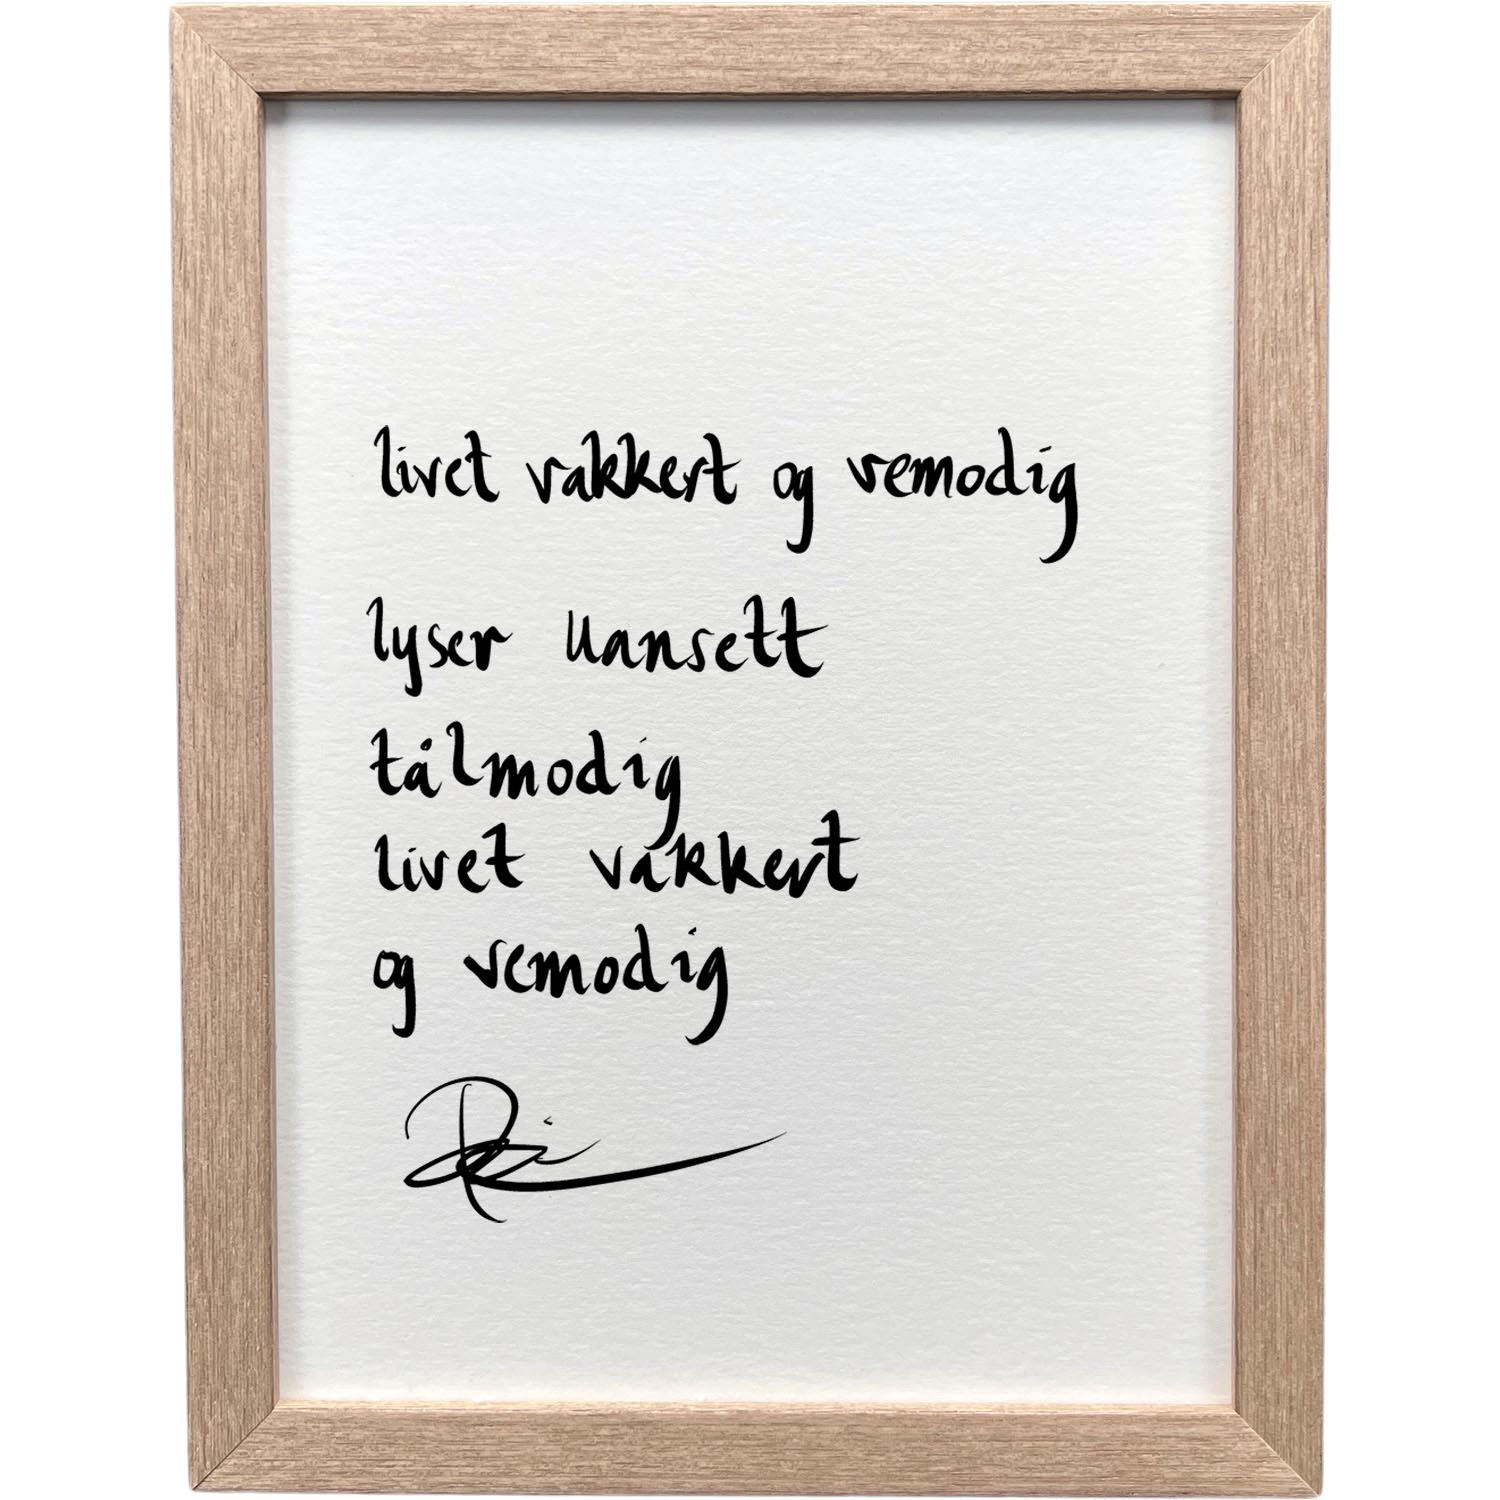 livet vakkert og vemodig
lyser uansett
tålmodig
livet vakkert
og vemodig